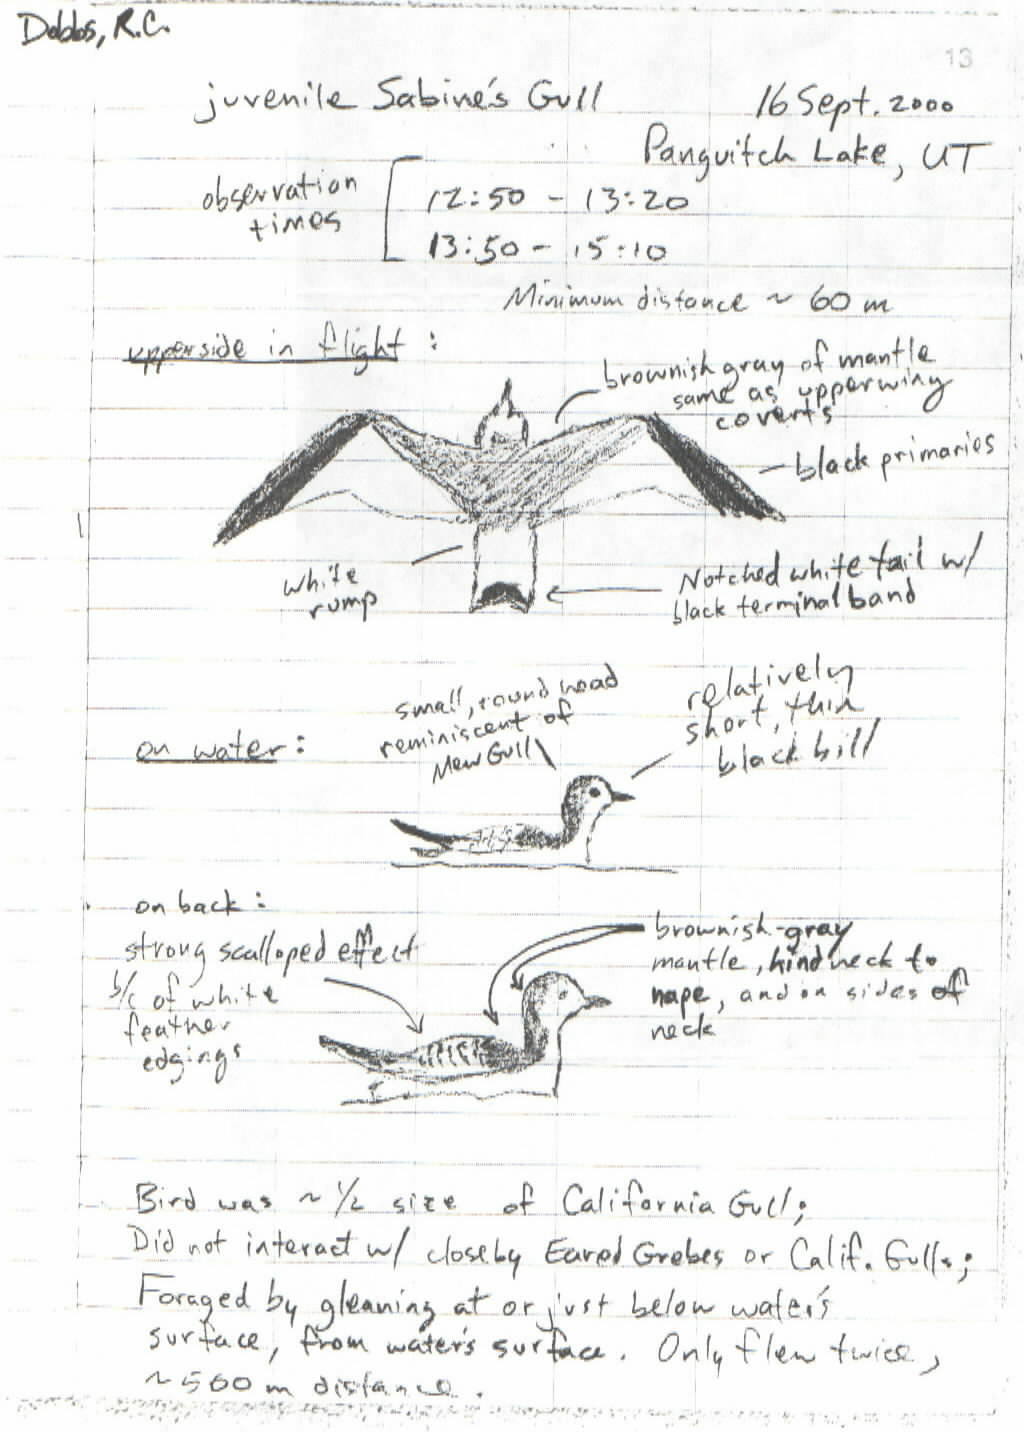 Dobbs, R.C.
13
juvenile Sabine's Gull
16 Sept. 2000
Panguitch Lake, UT
observation
times
12:50 - 13:20
13:50 - 15:10
Minimum distance ~ 60 m
upperside in flight:
brownish gray of mantle
same as upperwing
coverts
black primaries
white
rump
Notched white tail w/
black terminal band
on water:
small, round head
reminiscent of
Mew Gull
relatively
short, thin
black bill
on back:
strong scalloped effect
b/c of white
feather
edgings
brownish-gray
mantle, hind neck to
nape, and on sides of
neck
Bird was ~ 1/2 size of California Gull;
Did not interact w/ closeby Eared Grebes or Calif. Gulls;
Foraged by gleaning at or just below water's
surface, from water's surface. Only flew twice,
~500 m distance.